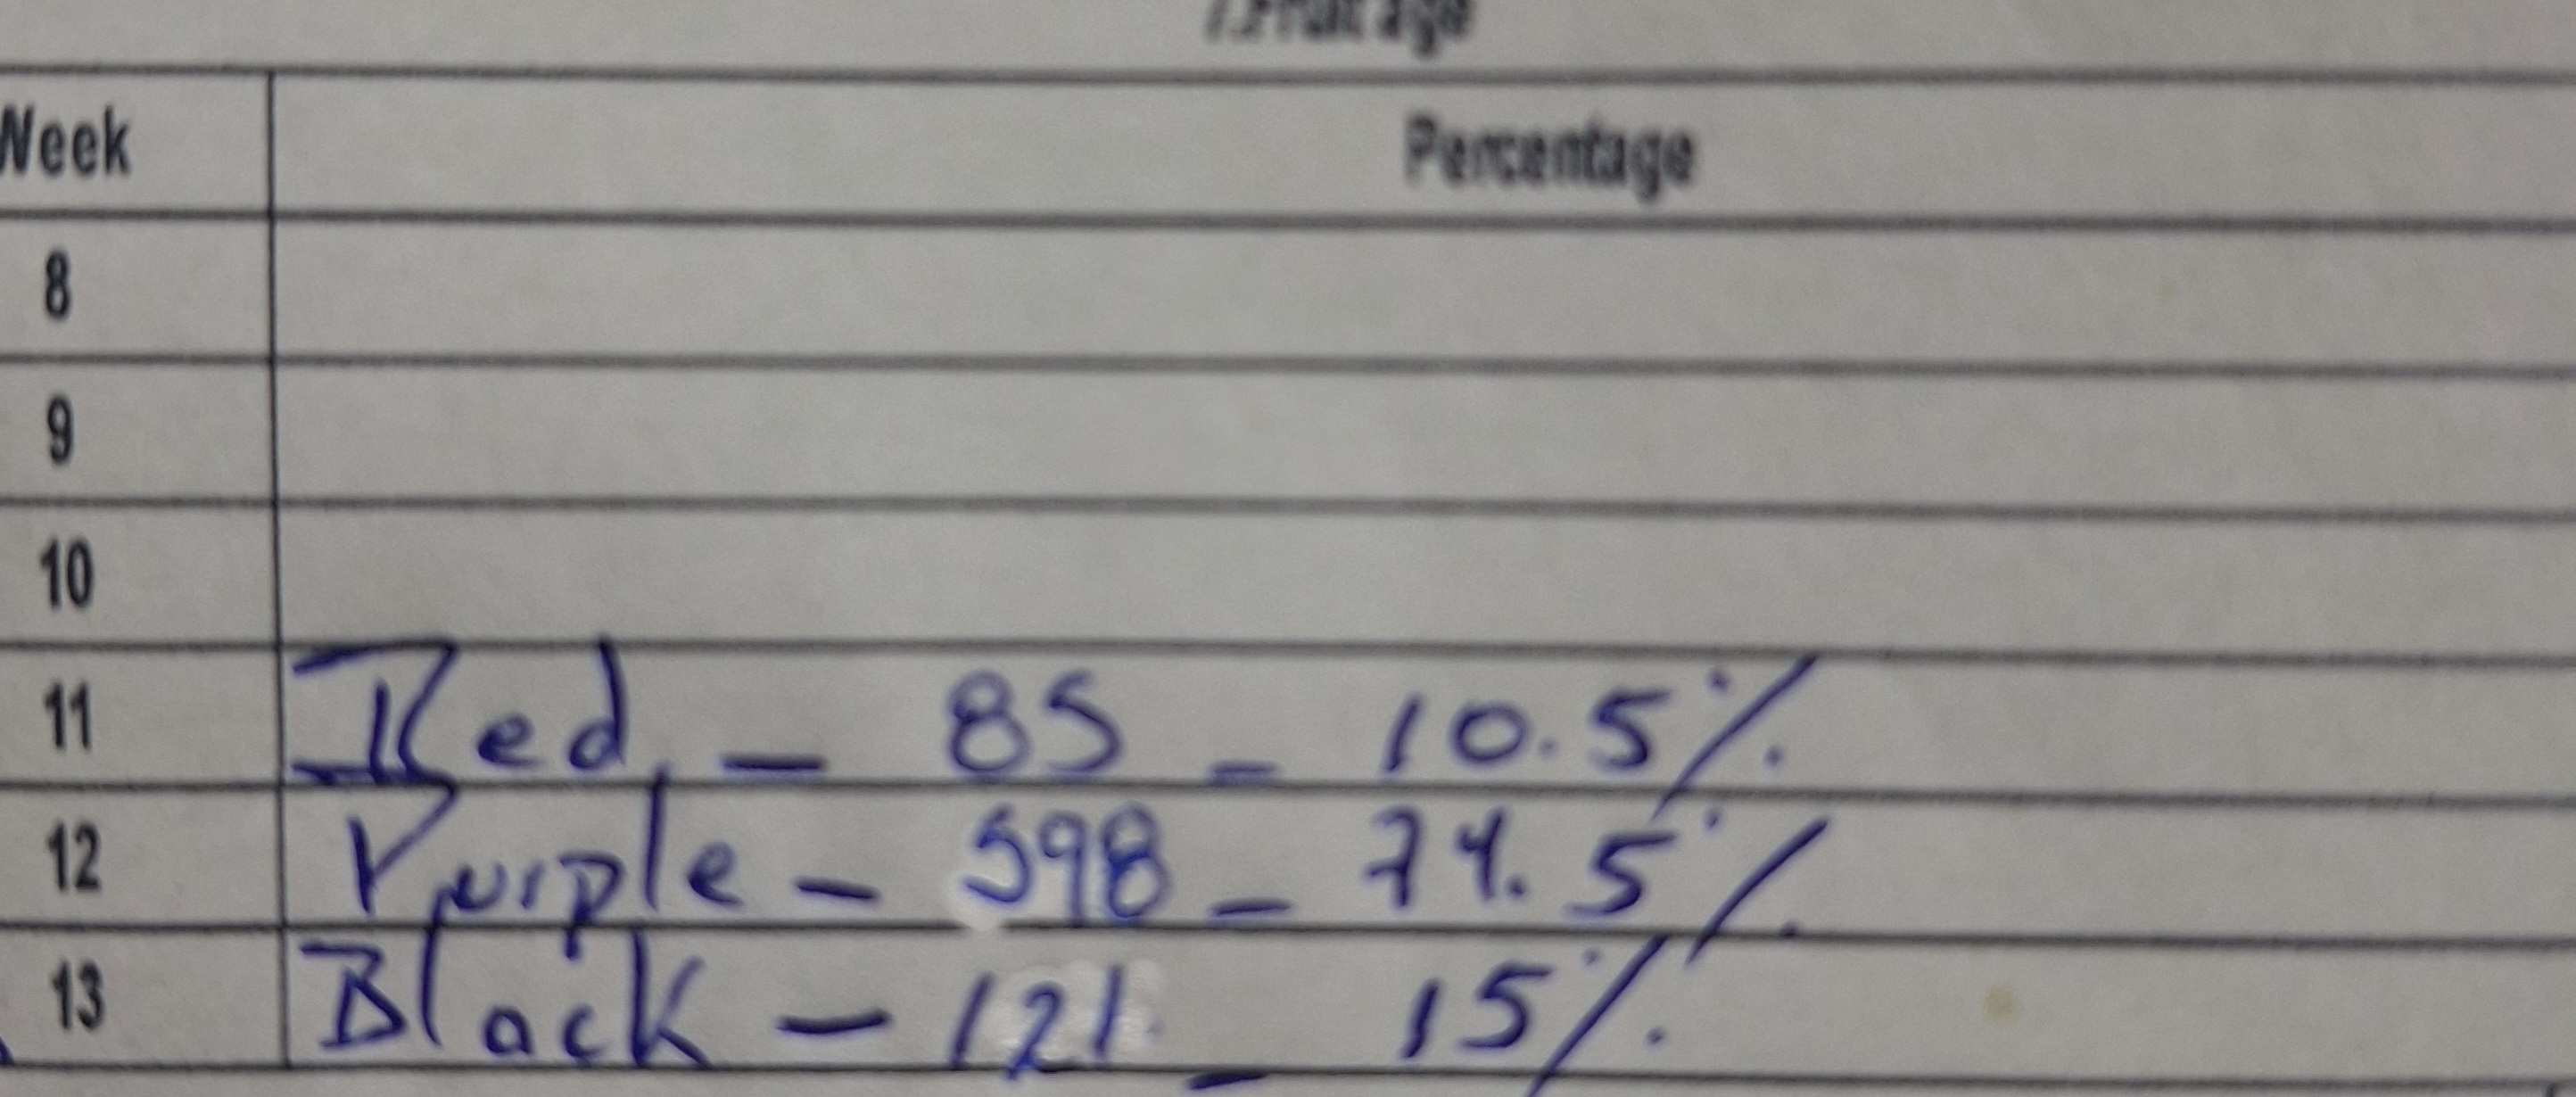 7.Fruit age
Week Percentage
8
9
10
11 Red - 85 - 10.5%
12 Purple - 598 - 74.5%
13 Black - 121 - 15%